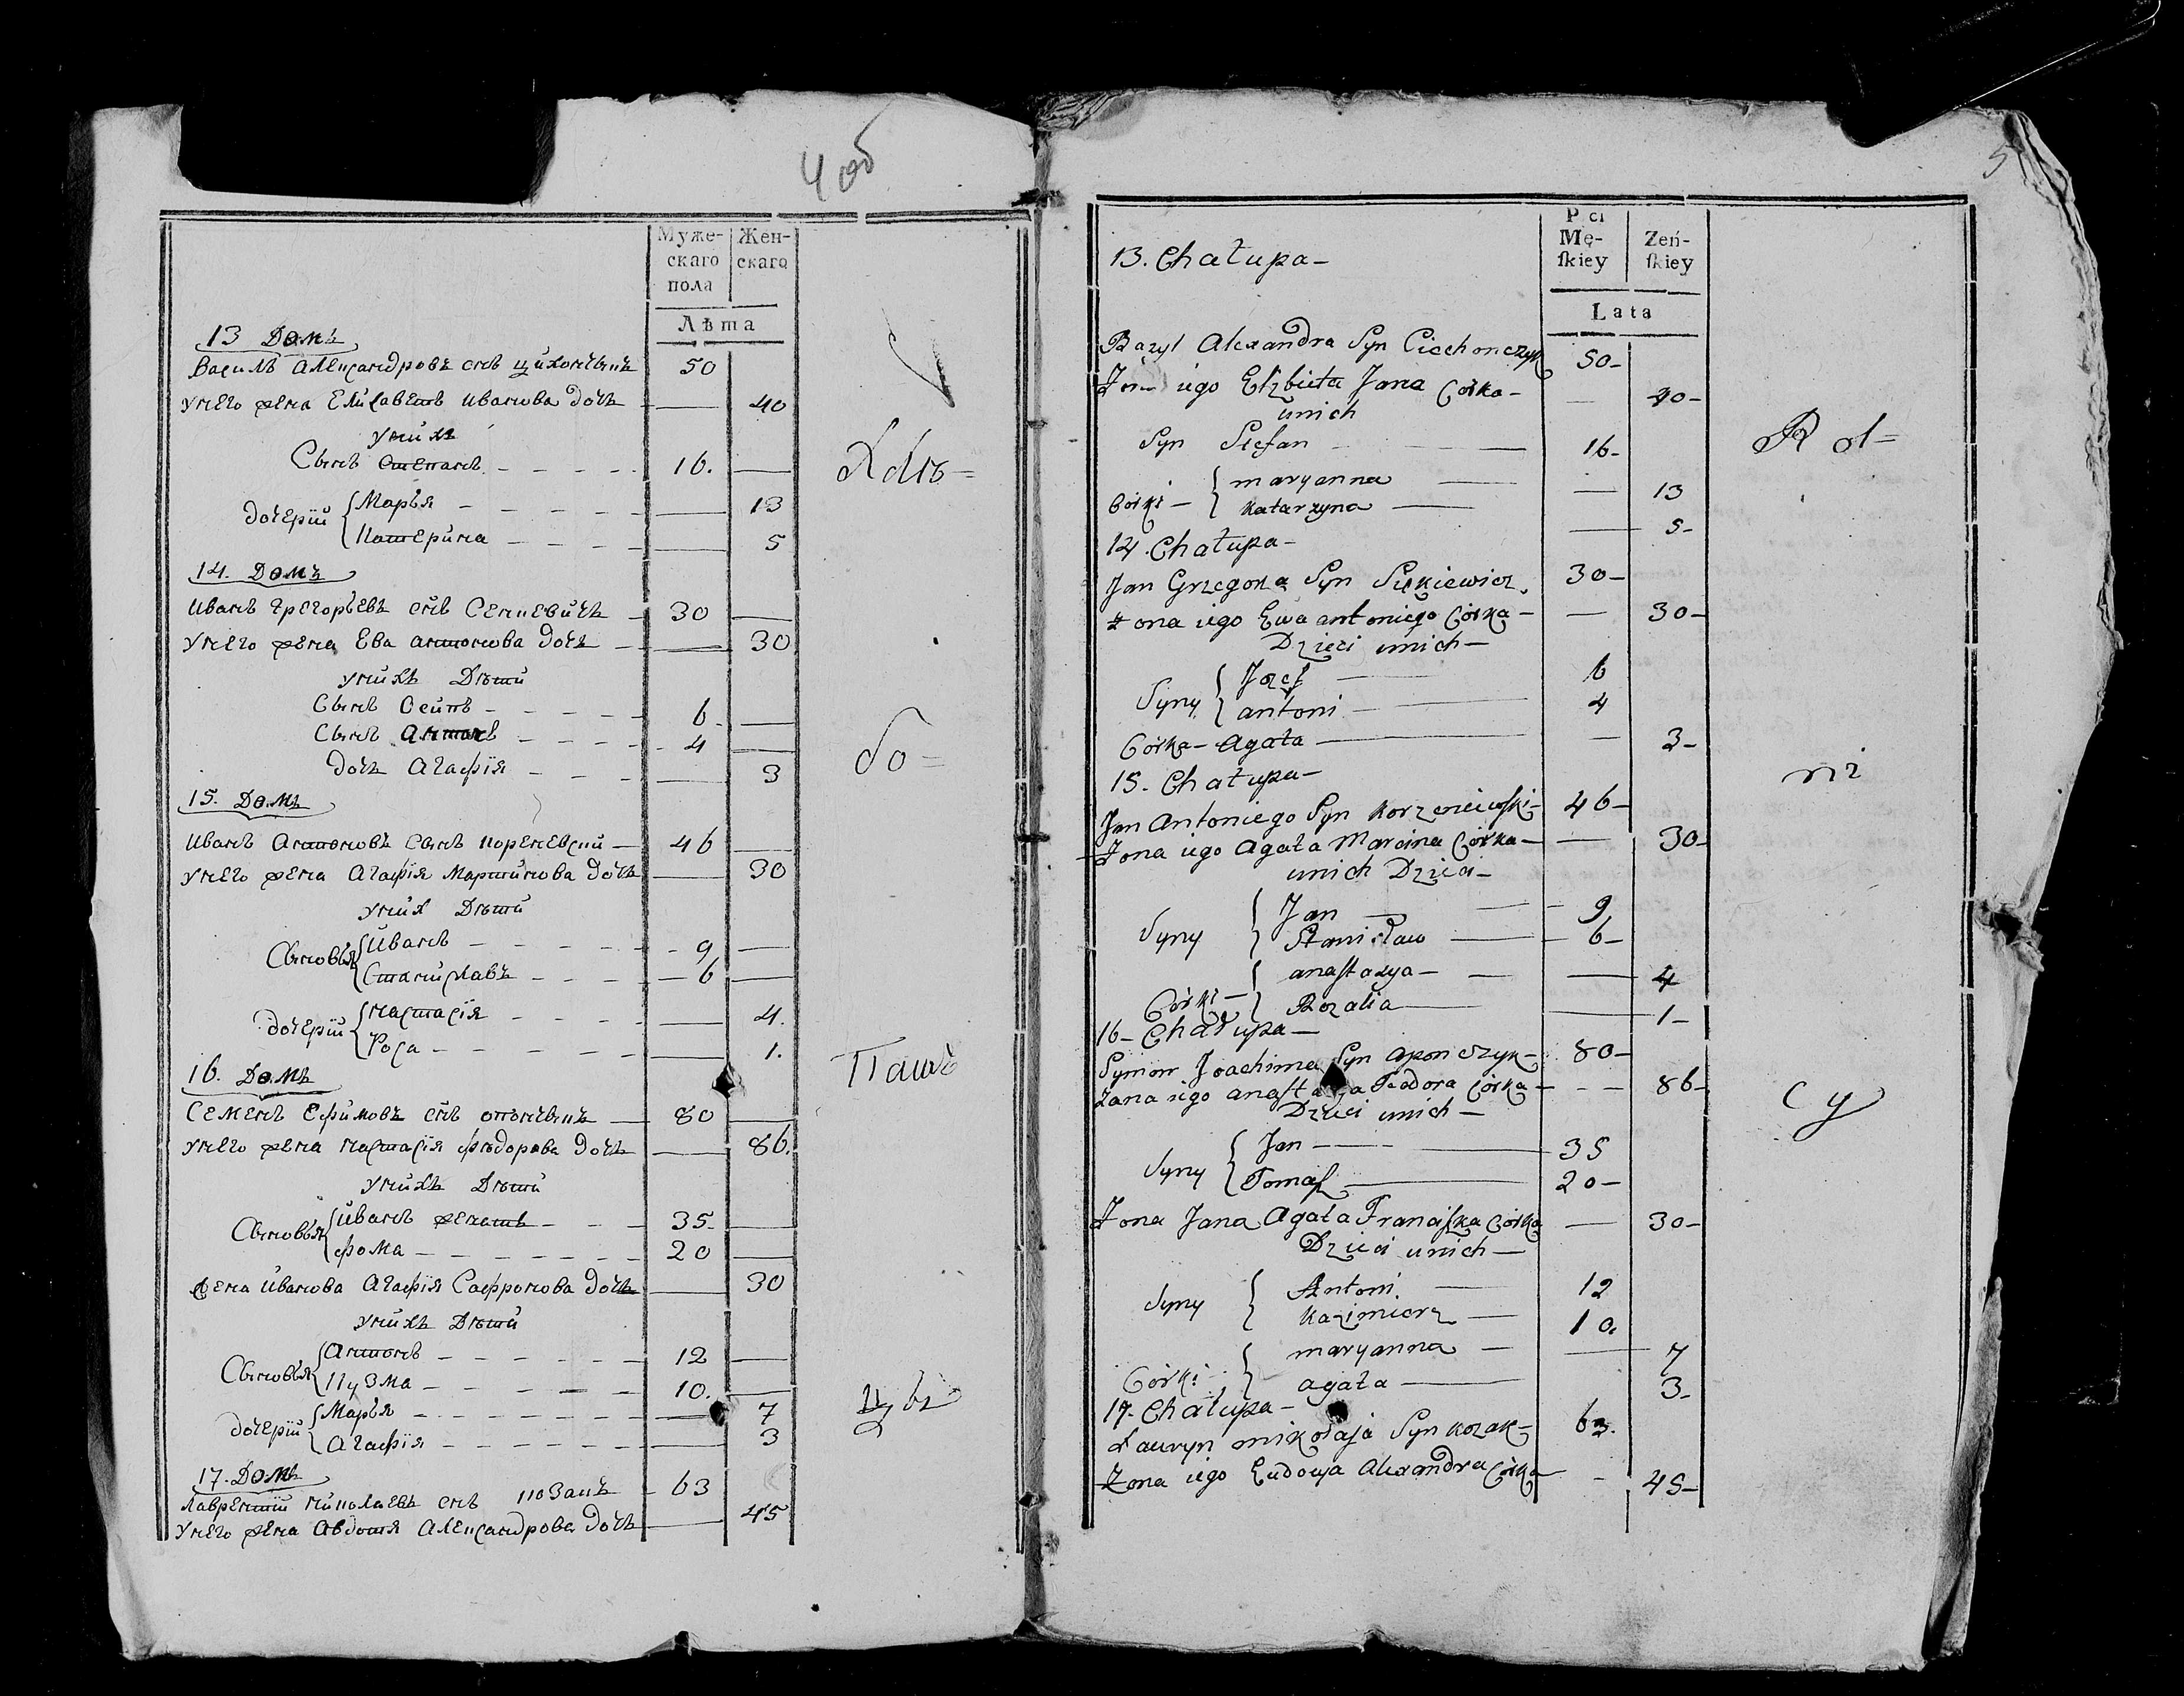 4 об
Муже-
скаго
пола
Жен-
скаго
Лѣта
13 Домъ
Василь Александровъ снъ Цихончыкъ 50
Унего жена Елисаветь Иванова дочь — 40
Унихъ
Сынъ Степанъ 16. —
дочерїи Марья — 13
Катерина — 5
14. Домъ
Иванъ Грегорьевъ снъ Сенкевичъ 30 —
Унего жена Ева Антонова дочь — 30
Унихъ Дѣти
Сынъ Осипъ 6 —
Сынъ Антонъ 4 —
Дочь Агафїя — 3
15. Домъ
Иванъ Антоновъ Сынъ Корженевски 46 —
Унего жена Агафїя Мартинова дочь — 30
Уних Дѣти
Сыновья Иванъ 9 —
Станиславъ 6 —
дочерїи Настасїя — 4.
Роса — 1.
16. Домъ
Семенъ Ефимовъ снъ Опончыкъ 80 —
Унего жена Настасїя Фѣдорова дочь — 86.
Унихъ Дѣти
Сыновья Иванъ женатъ 35 —
Фома 20 —
Жена Иванова Агафїя Сафронова дочь — 30
Унихъ Дѣти
Сыновья Антонъ 12 —
Кузма 10. —
дочерїи Марья — 7
Агафїя — 3
17. Домъ
Лаврентїи Николаевъ снъ Козакъ 63
Унего жена Авдотя Александрова дочь — 45
Хлѣ=
бо=
Паш
цы
5
Płci
Mę-
ſkiey
Zeń-
ſkiey
Lata
13. Chałupa —
Bazyl Alexandra Syn Ciechonczyk 50 —
Zona iego Elzbieta Jana Córka — 40 —
unich
Syn Stefan — 16 —
Córki — maryanna — 13
Katarzyna — 5 —
14. Chałupa —
Jan Grzegorza Syn Siękiewicz 30 —
Zona iego Ewa antoniego Córka — 30 —
Dzieci unich —
Syny Jozef — 6
antoni — 4
Córka — Agata — 3 —
15. Chałupa —
Jan Antoniego Syn Korzeniewſki 46 —
Zona iego Agata Marcina Córka — 30 —
unich Dzieci —
Syny Jan — 9
Stanisław — 6 —
Córki — anaſtazya — 4
Rozalia — 1 —
16 — Chałupa —
Symon Joachima Syn Aponczyk 80 —
Zona iego anaſtazya Teodora Córka — 86 —
Dzieci unich —
Syny Jan — 35
Tomaſz — 20 —
Zona Jana Agata Franciſzka Córka — 30 —
Dzieci unich —
Syny Antoni — 12
Kazimierz — 10.
Córki maryanna — 7
agata — 3 —
17. Chałupa —
Ławryn mikołaja Syn kozak — 63.
Zona iego Eudoxya Alexandra Córka — 45 —
Rol=
ni
cy